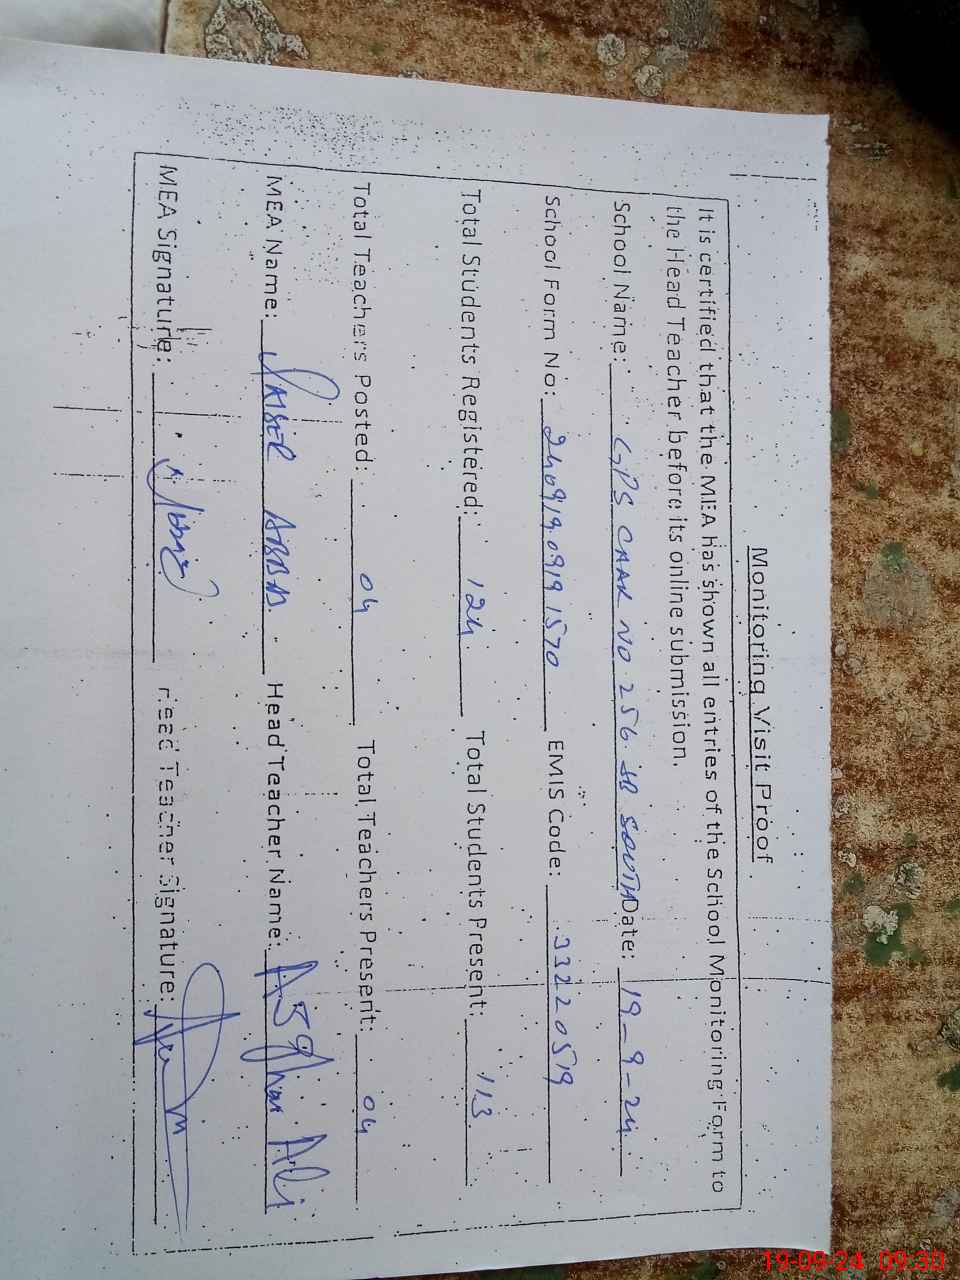 Monitoring Visit Proof
It is certified that the MEA has shown all entries of the School Monitoring Form to
the Head Teacher before its online submission.
School Name: GPS CHAK NO 256 JB SOUTH Date: 19-9-24
School Form No: 24091909191570 EMIS Code: 33220519
Total Students Registered: 124 Total Students Present: 113
Total Teachers Posted: 04 Total Teachers Present: 04
MEA Name: ABBAS Head Teacher Name: Asghar Ali
MEA Signature: Head Teacher Signature:
19-09-24 09:30